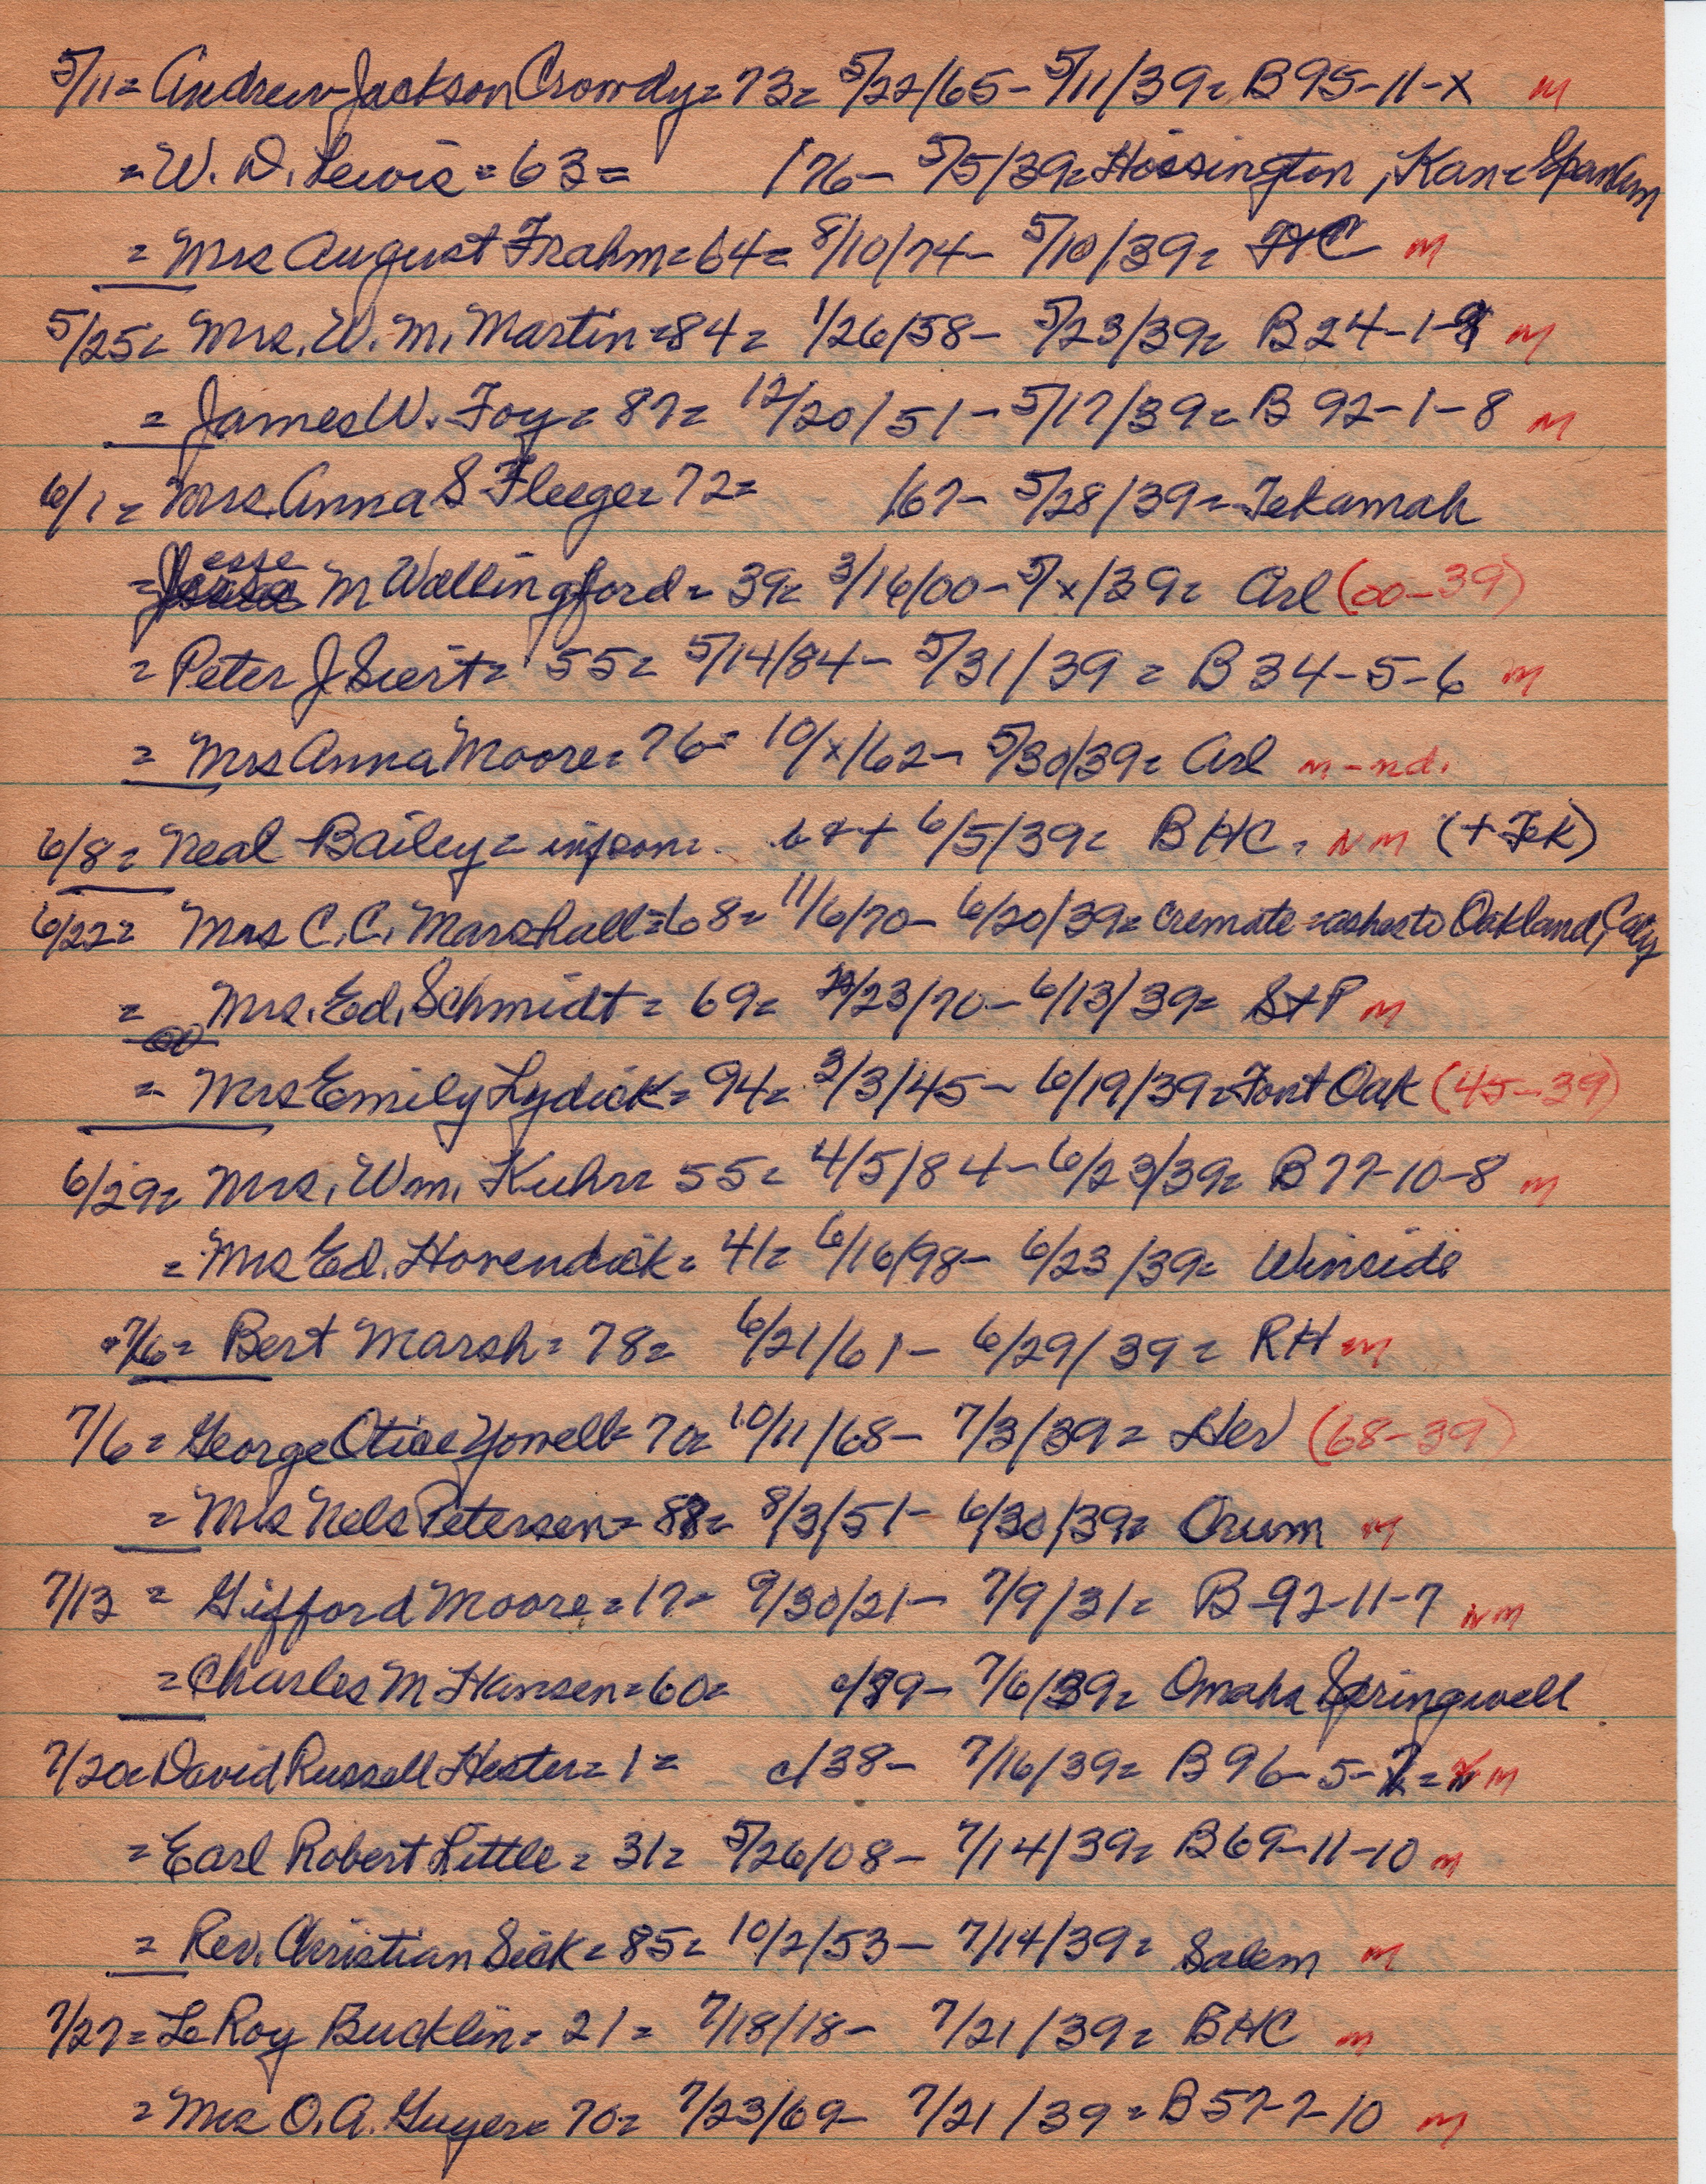 5/11= Andrew Jackson Crowdy= 73= 5/22/65- 5/11/39= B 95-11-X m
=W. D. Lewis=63= /76- 5/5/39= Hoisington, Kan=
= Mrs August Frahm=64= 8/10/74- 5/10/39= m
5/25= Mrs. W. M. Martin=84= 1/26/58- 5/23/39= B 24-1- m
= James W. Foy= 87= 12/20/51- 5/17/39= B 92-1-8 m
6/1= Mrs. Anna S Fleege= 72= /67- 5/28/39= Tekamah
=Jesse M Wallingford= 39= 3/16/00- 5/x/39= Arl (00-39)
= Peter J Siert= 55= 5/14/84- 5/31/39= B 34-5-6 m
= Mrs Anna Moore= 76= 10/x/62- 5/30/39= Arl m-nd.
6/8= Neal Bailey= infson= b++ 6/5/39= BHC= NM (+Tek)
6/22= Mrs C. C. Marshall=68= 11/6/70- 6/20/39= cremate=ashes to Oakland,
= Mrs. Ed. Schmidt= 69= /23/70- 6/13/39= StP m
= Mrs Emily Lydick= 94= 3/3/45- 6/19/39= Font Oak (45-39)
6/29= Mrs. Wm. Kuhr= 55= 4/5/84- 6/23/39= B 77-10-8 m
= Mrs Ed. Hovendick= 41= 6/16/98- 6/23/39= Winside
7/6= Bert Marsh= 78= 6/21/61- 6/29/39= RH m
7/6= George Otice Yowell= 70= 10/11/68- 7/3/39= Her (68-39)
= Mrs Nels Petersen= 88= 8/3/51- 6/30/39= Orum m
7/13 = Gifford Moore=17= 9/30/21- 7/9/31= B-92-11-7 NM
=Charles M Hansen=60= c/79- 7/6/39= Omaha Springwell
7/20= David Russell Hester= 1= c/38- 7/16/39= B 96-5- = m
=Earl Robert Little= 31= 5/26/08- 7/14/39= B 69-11-10 m
= Rev. Christian Sick= 85= 10/2/53- 7/14/39= Salem m
7/27= LeRoy Bucklin= 21= 7/18/18- 7/21/39= BHC m
= Mrs O. A. Guyer= 70= 7/23/69- 7/21/39= B 57-7-10 m